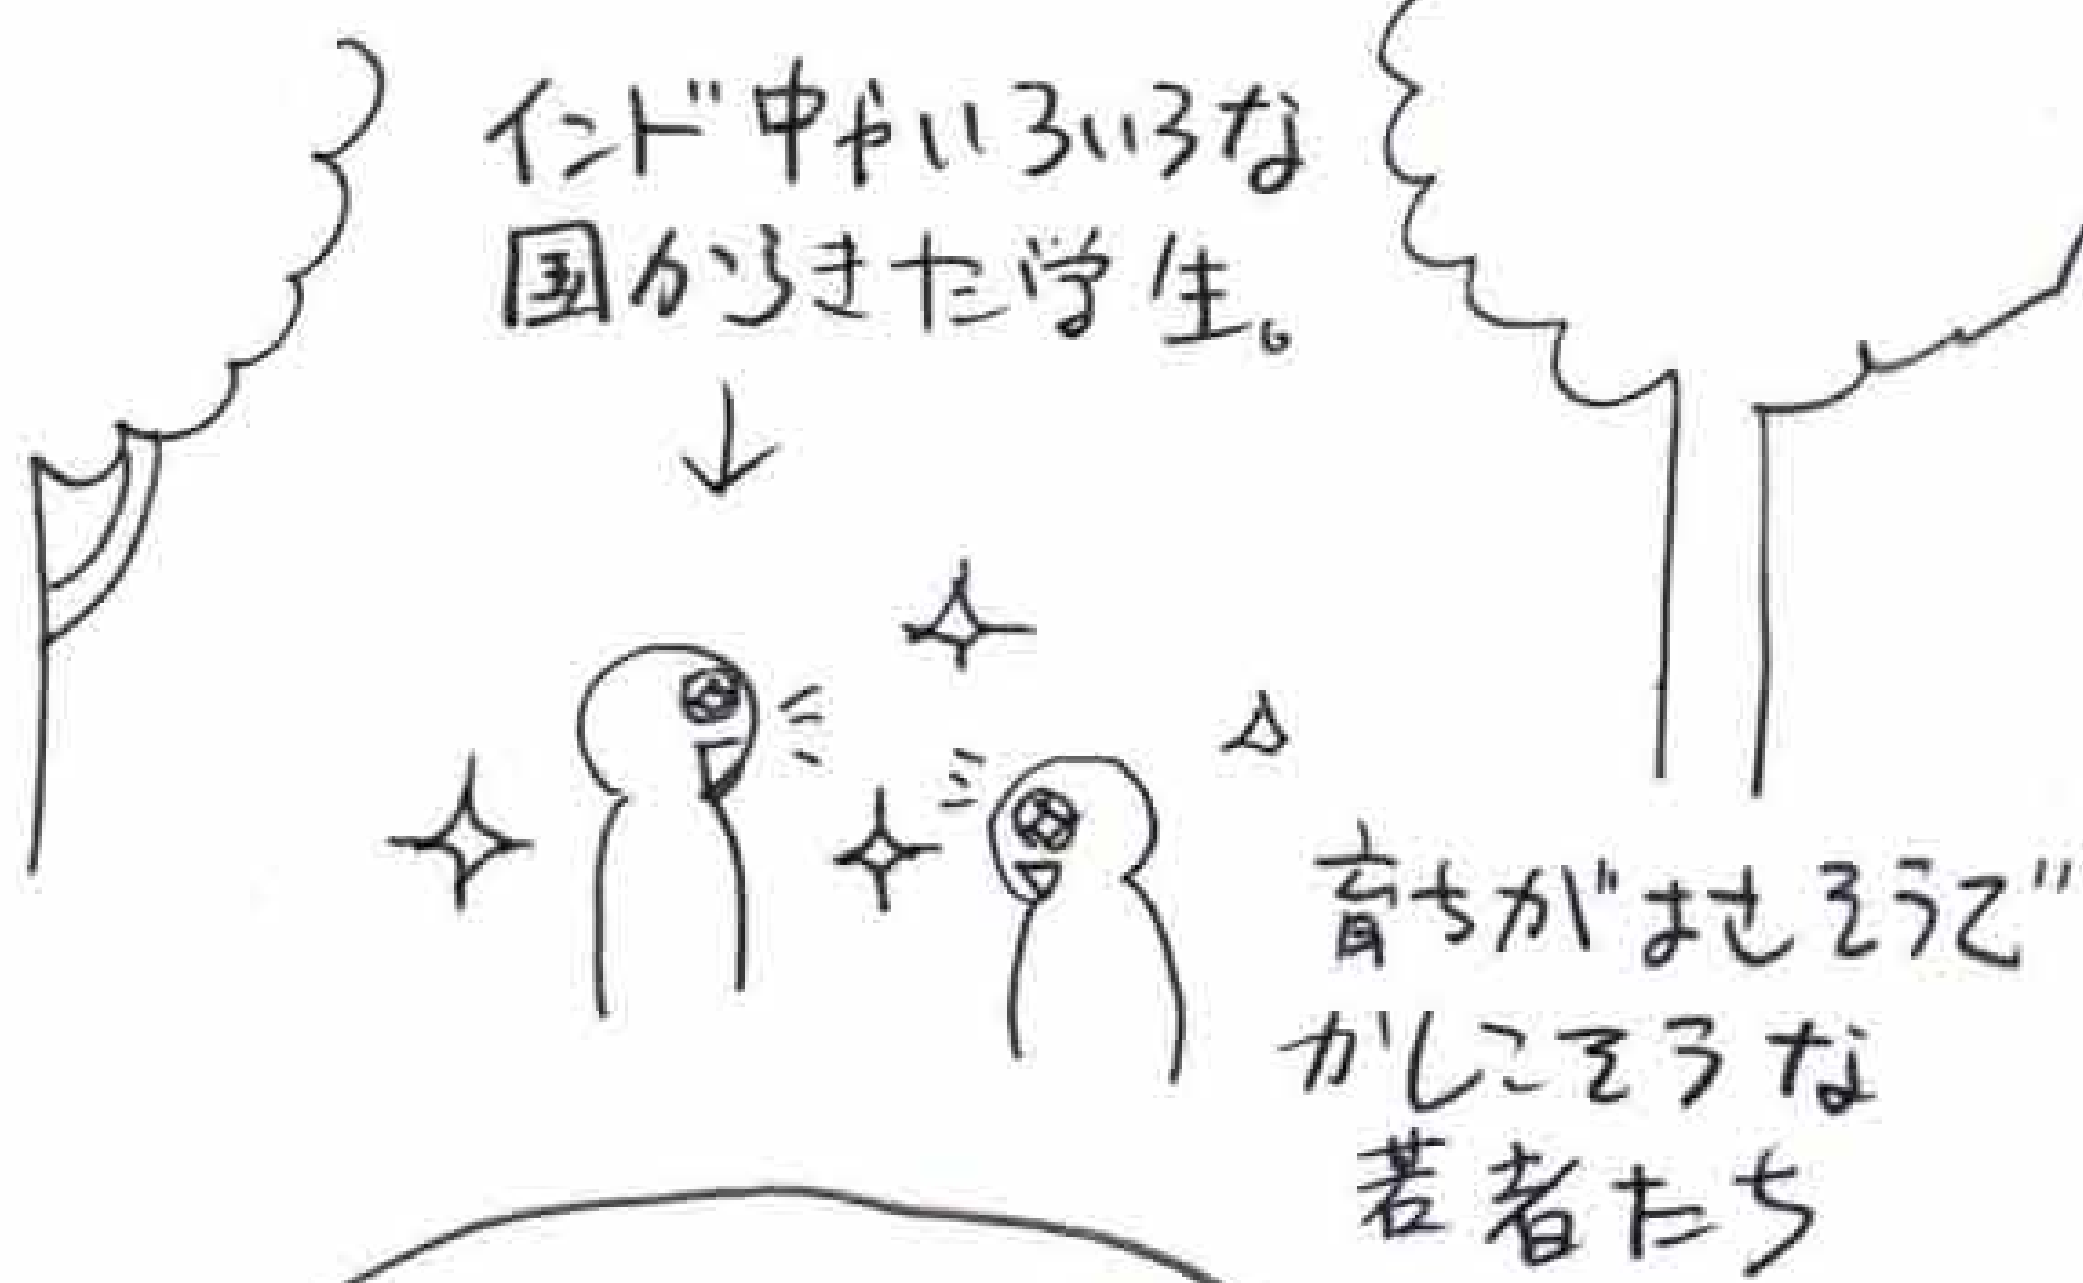 インド中やいろいろな
国からきた学生。
育ちがよさそうで
かしこそうな
若者たち